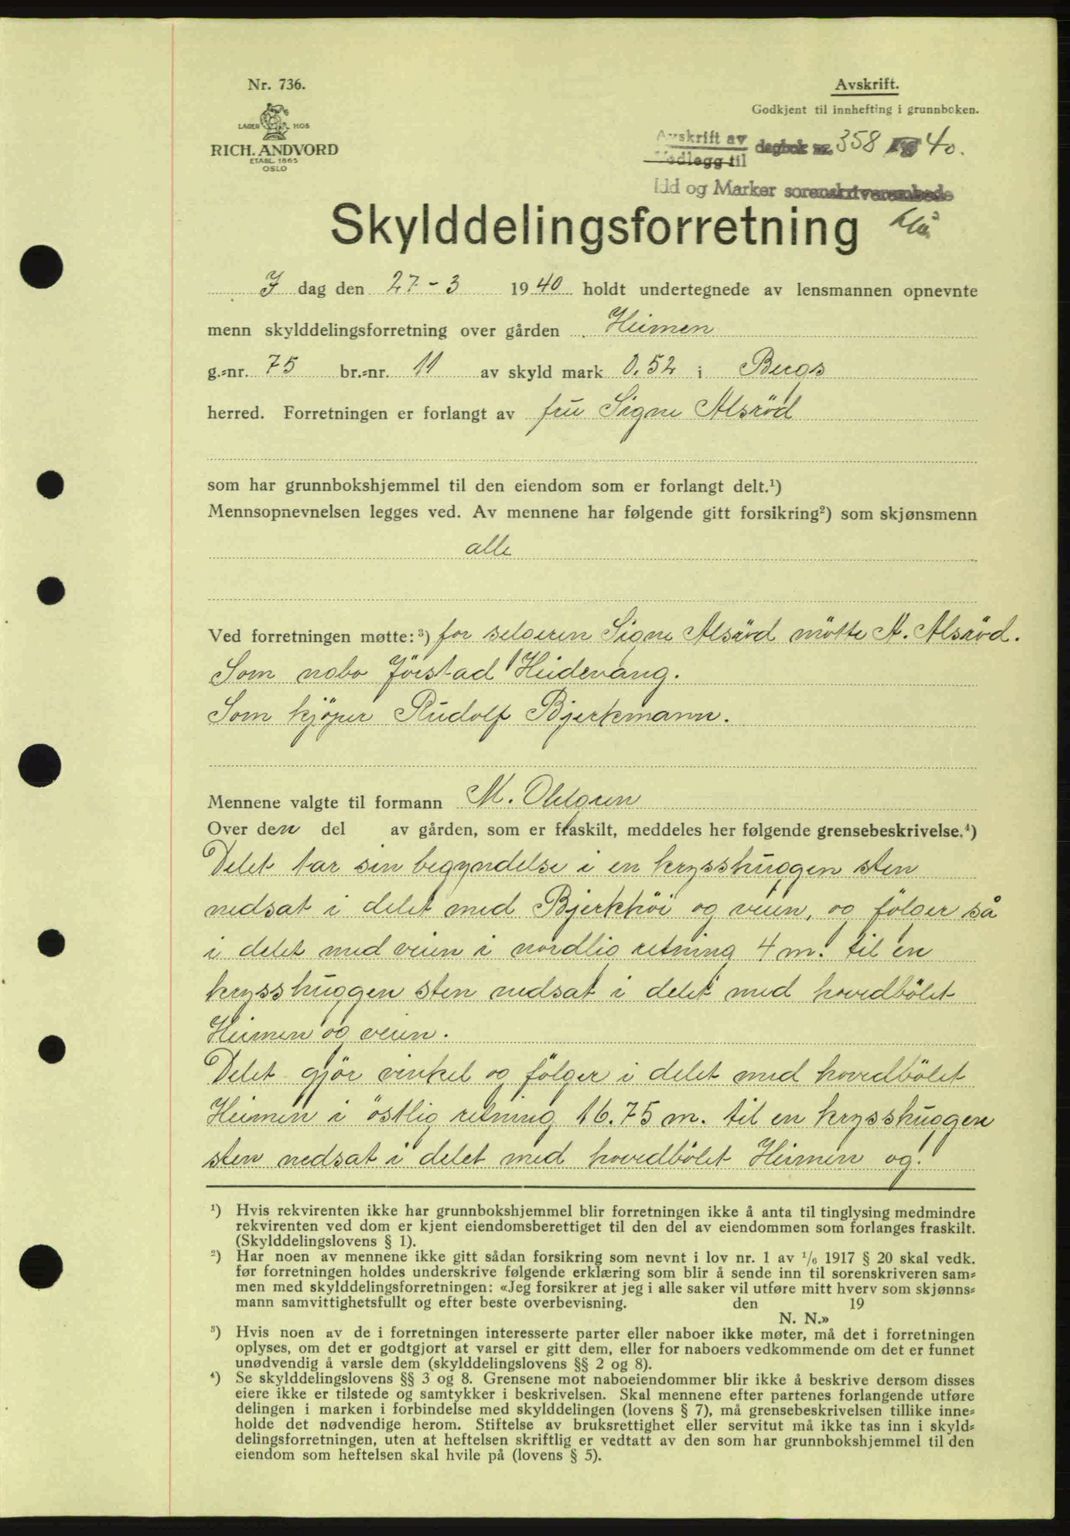 Nr. 736.
Avskrift.
Godkjent til innhefting i grunnboken.
LAGER HOS
RICH. ANDVORD
ETABL. 1865
OSLO
Avskrift av dagbok nr. 358 1940.
Vedlegg til
Idd og Marker sorenskriverembede
Skylddelingsforretning
I dag den 27-3 1940 holdt undertegnede av lensmannen opnevnte
menn skylddelingsforretning over gården Heimen
g.-nr. 75 br.-nr. 11 av skyld mark 0,52 i Bergs
herred. Forretningen er forlangt av fru Signe Alsröd
som har grunnbokshjemmel til den eiendom som er forlangt delt.¹)
Mennsopnevnelsen legges ved. Av mennene har følgende gitt forsikring²) som skjønsmenn
alle
Ved forretningen møtte:³) for selgeren Signe Alsröd mötte A. Alsröd.
Som nabo Jörstad Heidevang.
Som kjöper Rudolf Bjerkmann.
Mennene valgte til formann M. Ohlgren
Over den del av gården, som er fraskilt, meddeles her følgende grensebeskrivelse.⁴)
Delet tar sin begyndelse i en krysshuggen sten
nedsat i delet med Bjerkhöi og veien, og fölger så
i delet med veien i nordlig retning 4 m. til en
krysshuggen sten nedsat i delet med hovedbölet
Heimen og veien.
Delet gjör vinkel og fölger i delet med hovedbölet
Heimen i östlig retning 16.75 m. til en krysshuggen
sten nedsat i delet med hovedbölet Heimen og.
¹) Hvis rekvirenten ikke har grunnbokshjemmel blir forretningen ikke å anta til tinglysing medmindre
rekvirenten ved dom er kjent eiendomsberettiget til den del av eiendommen som forlanges fraskilt.
(Skylddelingslovens § 1).
²) Har noen av mennene ikke gitt sådan forsikring som nevnt i lov nr. 1 av 1/6 1917 § 20 skal vedk.
før forretningen holdes underskrive følgende erklæring som blir å sende inn til sorenskriveren sam-
men med skylddelingsforretningen: «Jeg forsikrer at jeg i alle saker vil utføre mitt hverv som skjønns-
mann samvittighetsfullt og efter beste overbevisning. den 19
N. N.»
³) Hvis noen av de i forretningen interesserte parter eller naboer ikke møter, må det i forretningen
oplyses, om det er godtgjort at varsel er gitt dem, eller for naboers vedkommende om det er funnet
unødvendig å varsle dem (skylddelingslovens §§ 2 og 8).
⁴) Se skylddelingslovens §§ 3 og 8. Grensene mot naboeiendommer blir ikke å beskrive dersom disses
eiere ikke er tilstede og samtykker i beskrivelsen. Skal mennene efter partenes forlangende utføre
delingen i marken i forbindelse med skylddelingen (lovens § 7), må grensebeskrivelsen tillike inne-
holde det nødvendige herom. Stiftelse av bruksrettighet eller servitut må ikke tas inn i skyld-
delingsforretningen, uten at heftelsen skriftlig er vedtatt av den som har grunnbokshjemmel til den
eiendom som heftelsen skal hvile på (lovens § 5).